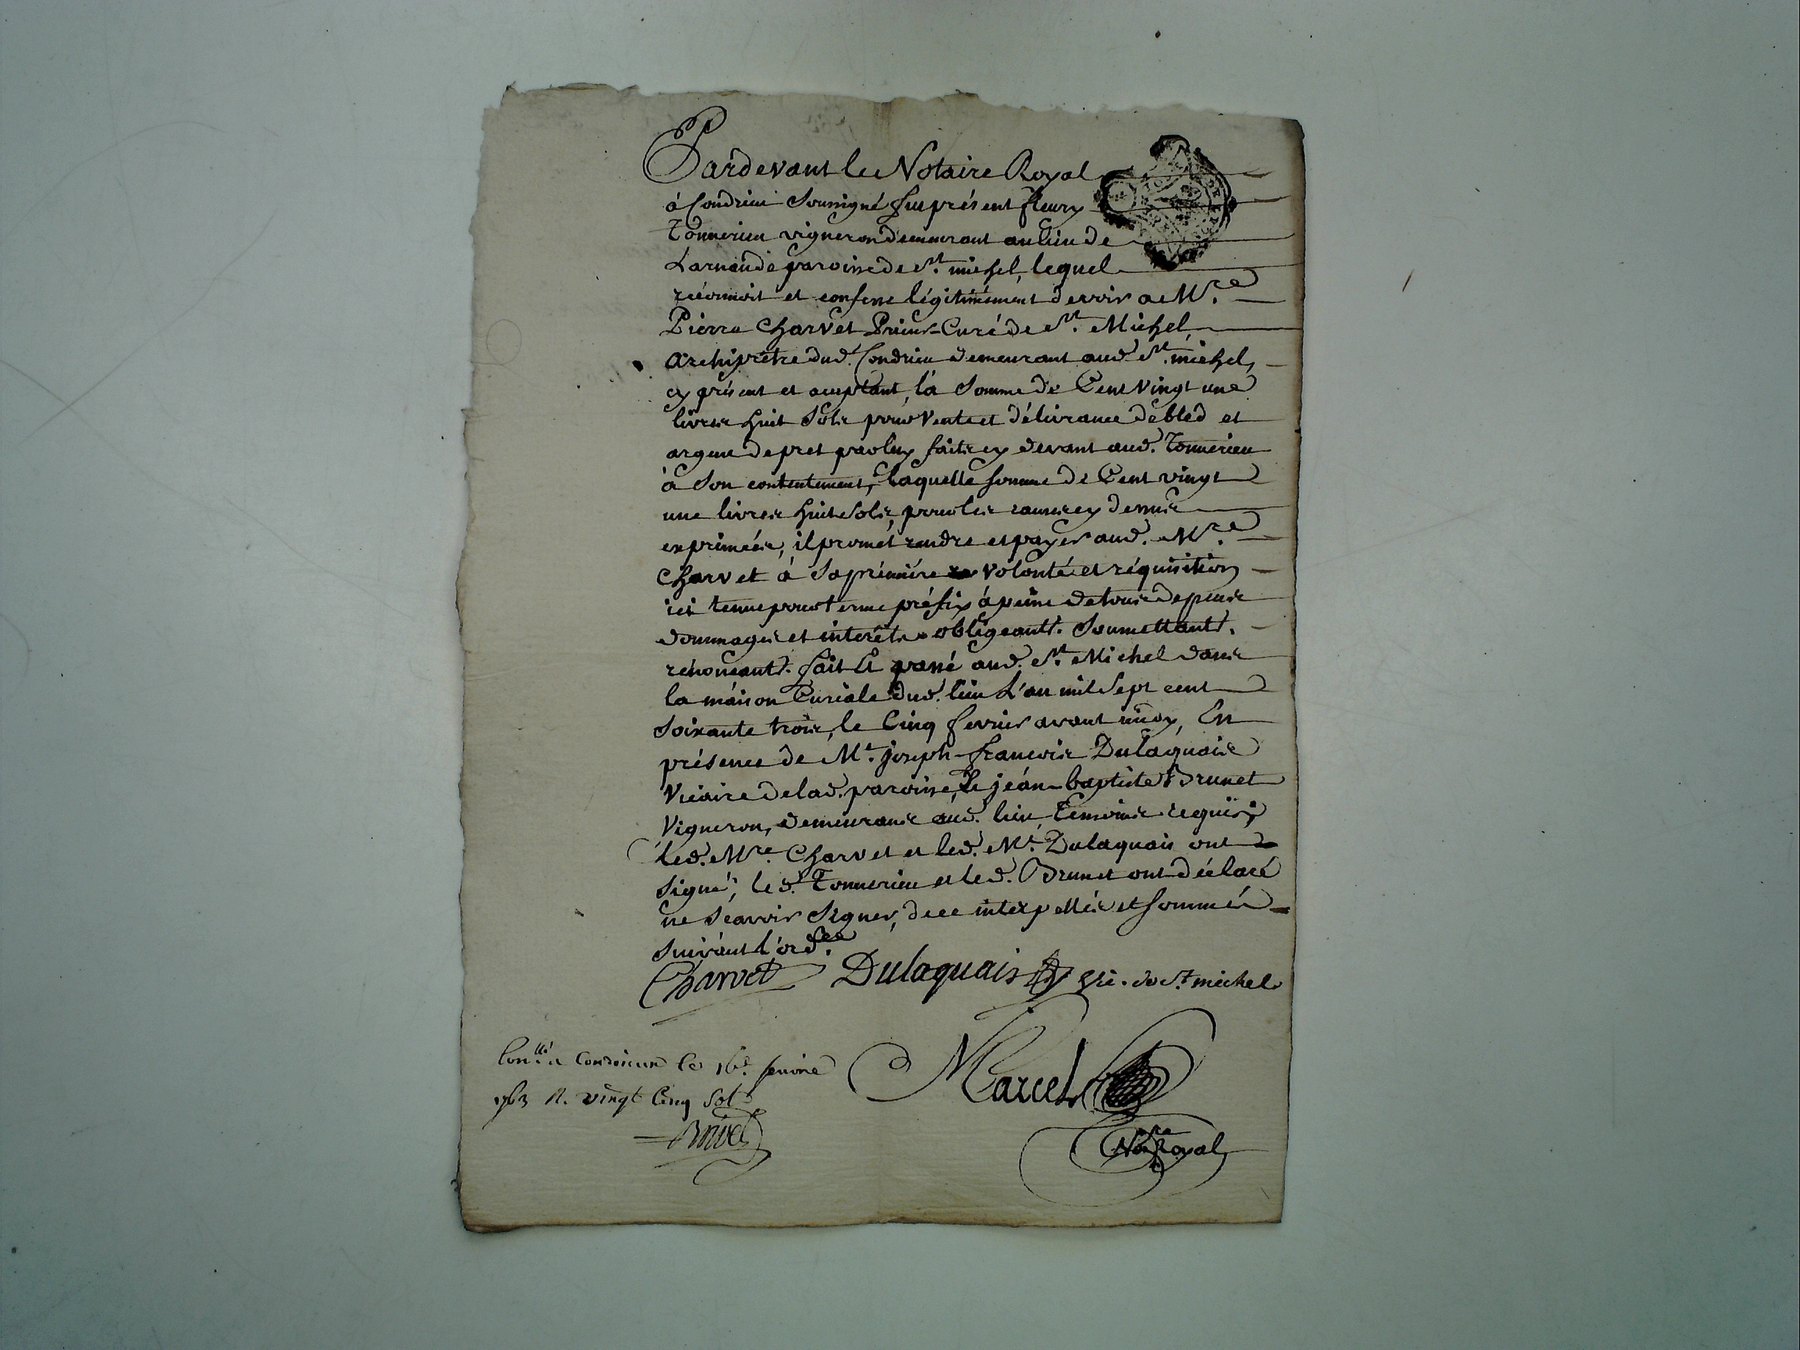 Pardevant le Notaire Royal
à Condrieu soussigné fut présent fleury
Tonnerieu vigneron demeurant au lieu de
Larnaude paroisse de St. michel, lequel
réconnoit et confesse légitimément devoir a Mre.
Pierre Charvet Prieur-Curé de St. Michel
archiprêtre dud. Condrieu demeurant aud. St. michel,
cy présent et acceptant, la somme de Cent vingt une
livres huit sols pour vente et délivrance de bled et
argent de pret par luy faits cy devant aud. Tonnerieu
à son contentement, laquelle somme de Cent vingt
une livres huit sols, pour les causes cy dessus
exprimées, il promet rendre et payer aud. Mre.
Charvet à sa prémière volonté et réquisition
ici tenue pour terme préfix à peine de tous depens
dommages et interêts obligeant. soumettant.
rénonçant. fait et passé aud. St. Michel dans
la máison Curiale dud. lieu L'an mil sept cent
soixante trois, le Cinq fevrier avant midy, En
présence de Mr. joseph-françois Dulaquais
Vicaire de lad. paroisse, & jéan-baptiste Brunet
Vigneron, demeurans aud. lieu, Temoins requis,
led. Mre. Charvet et led. Mr. Dulaquais ont
signé; led. Tonnerieu et led. Brunet ont déclaré
ne sçavoir signer, de ce interpellés et sommés
suivant l'ordce.
Charvet Dulaquais vic. de St. michel
Conllé a Condrieu le 16e. fevrier
1763 R. vingt Cinq sols
Marcel
Nore Royal